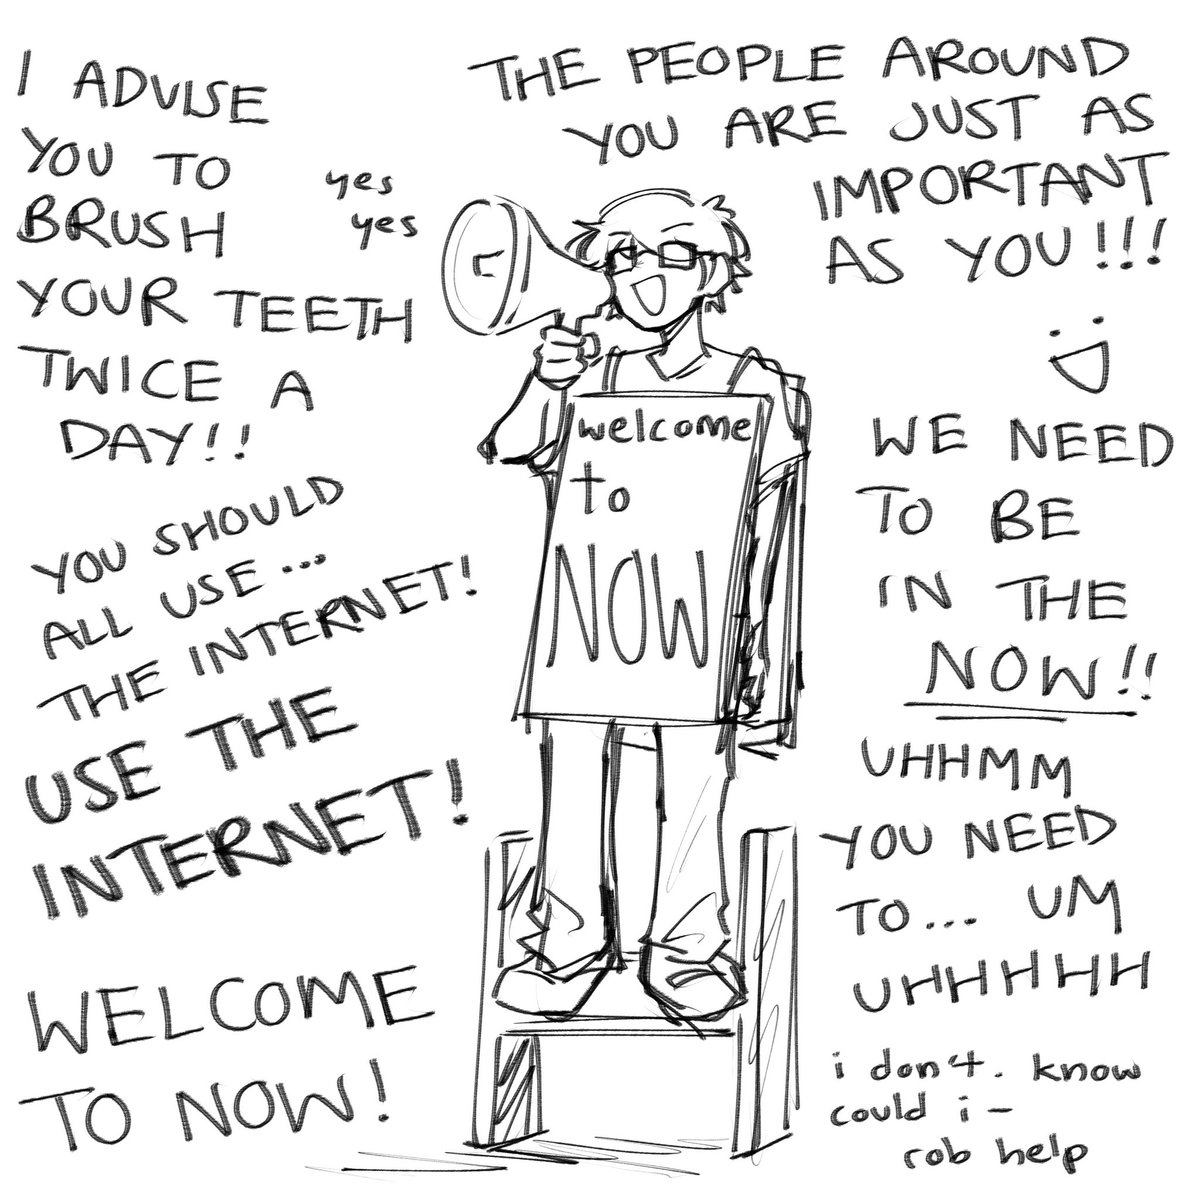 I ADVISE
YOU TO
BRUSH
YOUR TEETH
TWICE A
DAY!!
yes
yes
THE PEOPLE AROUND
YOU ARE JUST AS
IMPORTANT
AS YOU!!!
:D
welcome
to
NOW
YOU SHOULD
ALL USE...
THE INTERNET!
USE THE
INTERNET!
WELCOME
TO NOW!
WE NEED
TO BE
IN THE
NOW!!
UHHMM
YOU NEED
TO... UM
UHHHHH
i don't. know
could i –
rob help